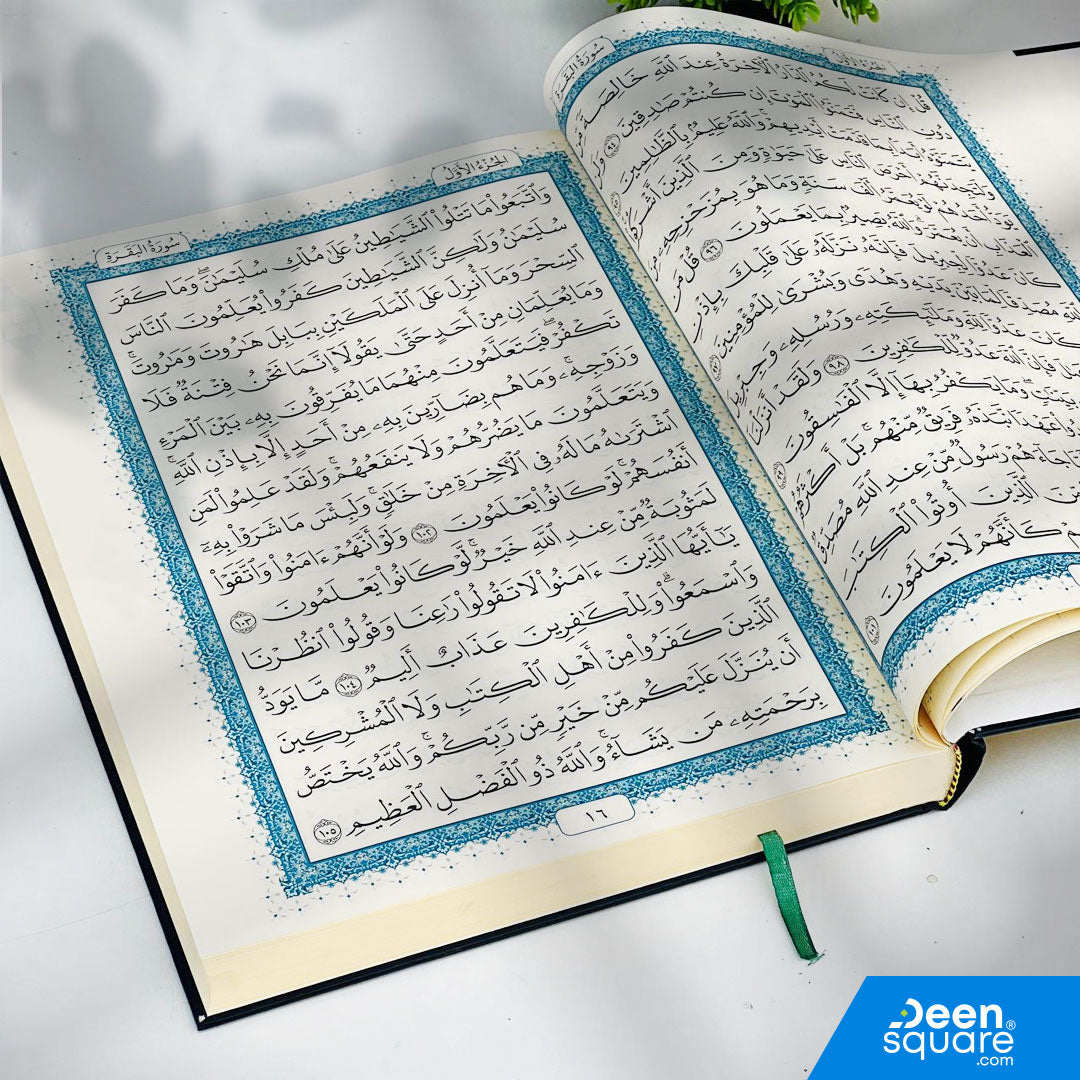 سُورَةُ البَقَرَةِ
الجُزْءُ الأَوَّلُ
قُلْ إِن كَانَتْ لَكُمُ ٱلدَّارُ ٱلْأَخِرَةُ عِندَ ٱللَّهِ خَالِصَةً
دُونِ ٱلنَّاسِ فَتَمَنَّوُا۟ ٱلْمَوْتَ إِن كُنتُمْ صَٰدِقِينَ ٩٤
يَتَمَنَّوْهُ أَبَدًۢا بِمَا قَدَّمَتْ أَيْدِيهِمْ وَٱللَّهُ عَلِيمٌۢ بِٱلظَّٰلِمِينَ
وَلَتَجِدَنَّهُمْ أَحْرَصَ ٱلنَّاسِ عَلَىٰ حَيَوٰةٍ وَمِنَ ٱلَّذِينَ أَشْرَكُوا۟
يَوَدُّ أَحَدُهُمْ لَوْ يُعَمَّرُ أَلْفَ سَنَةٍ وَمَا هُوَ بِمُزَحْزِحِهِۦ
ٱلْعَذَابِ أَن يُعَمَّرَ وَٱللَّهُ بَصِيرٌۢ بِمَا يَعْمَلُونَ ٩٦ قُلْ مَن
كَانَ عَدُوًّا لِّجِبْرِيلَ فَإِنَّهُۥ نَزَّلَهُۥ عَلَىٰ قَلْبِكَ بِإِذْنِ
ٱللَّهِ مُصَدِّقًا لِّمَا بَيْنَ يَدَيْهِ وَهُدًى وَبُشْرَىٰ لِلْمُؤْمِنِينَ
كَانَ عَدُوًّا لِّلَّهِ وَمَلَٰٓئِكَتِهِۦ وَرُسُلِهِۦ وَجِبْرِيلَ
فَإِنَّ ٱللَّهَ عَدُوٌّ لِّلْكَٰفِرِينَ ٩٨ وَلَقَدْ أَنزَلْنَآ
وَمَا يَكْفُرُ بِهَآ إِلَّا ٱلْفَٰسِقُونَ
عَهْدًا نَّبَذَهُۥ فَرِيقٌ مِّنْهُم بَلْ أَكْثَرُهُمْ
جَآءَهُمْ رَسُولٌ مِّنْ عِندِ ٱللَّهِ مُصَدِّقٌ
مِّنَ ٱلَّذِينَ أُوتُوا۟ ٱلْكِتَٰبَ
كَأَنَّهُمْ لَا يَعْلَمُونَ
سُورَةُ البَقَرَةِ
الجُزْءُ الأَوَّلُ
وَٱتَّبَعُوا۟ مَا تَتْلُوا۟ ٱلشَّيَٰطِينُ عَلَىٰ مُلْكِ سُلَيْمَٰنَ ۖ وَمَا كَفَرَ
سُلَيْمَٰنُ وَلَٰكِنَّ ٱلشَّيَٰطِينَ كَفَرُوا۟ يُعَلِّمُونَ ٱلنَّاسَ
ٱلسِّحْرَ وَمَآ أُنزِلَ عَلَى ٱلْمَلَكَيْنِ بِبَابِلَ هَٰرُوتَ وَمَٰرُوتَ ۚ
وَمَا يُعَلِّمَانِ مِنْ أَحَدٍ حَتَّىٰ يَقُولَآ إِنَّمَا نَحْنُ فِتْنَةٌ فَلَا
تَكْفُرْ ۖ فَيَتَعَلَّمُونَ مِنْهُمَا مَا يُفَرِّقُونَ بِهِۦ بَيْنَ ٱلْمَرْءِ
وَزَوْجِهِۦ ۚ وَمَا هُم بِضَآرِّينَ بِهِۦ مِنْ أَحَدٍ إِلَّا بِإِذْنِ ٱللَّهِ ۚ
وَيَتَعَلَّمُونَ مَا يَضُرُّهُمْ وَلَا يَنفَعُهُمْ ۚ وَلَقَدْ عَلِمُوا۟ لَمَنِ
ٱشْتَرَىٰهُ مَا لَهُۥ فِى ٱلْأَخِرَةِ مِنْ خَلَٰقٍ ۚ وَلَبِئْسَ مَا شَرَوْا۟ بِهِۦٓ
أَنفُسَهُمْ ۚ لَوْ كَانُوا۟ يَعْلَمُونَ ١٠٢ وَلَوْ أَنَّهُمْ ءَامَنُوا۟ وَٱتَّقَوْا۟
لَمَثُوبَةٌ مِّنْ عِندِ ٱللَّهِ خَيْرٌ ۖ لَّوْ كَانُوا۟ يَعْلَمُونَ ١٠٣
يَٰٓأَيُّهَا ٱلَّذِينَ ءَامَنُوا۟ لَا تَقُولُوا۟ رَٰعِنَا وَقُولُوا۟ ٱنظُرْنَا
وَٱسْمَعُوا۟ ۗ وَلِلْكَٰفِرِينَ عَذَابٌ أَلِيمٌ ١٠٤ مَّا يَوَدُّ
ٱلَّذِينَ كَفَرُوا۟ مِنْ أَهْلِ ٱلْكِتَٰبِ وَلَا ٱلْمُشْرِكِينَ
أَن يُنَزَّلَ عَلَيْكُم مِّنْ خَيْرٍ مِّن رَّبِّكُمْ ۗ وَٱللَّهُ يَخْتَصُّ
بِرَحْمَتِهِۦ مَن يَشَآءُ ۚ وَٱللَّهُ ذُو ٱلْفَضْلِ ٱلْعَظِيمِ ١٠٥
١٦
Deen
square®
.com